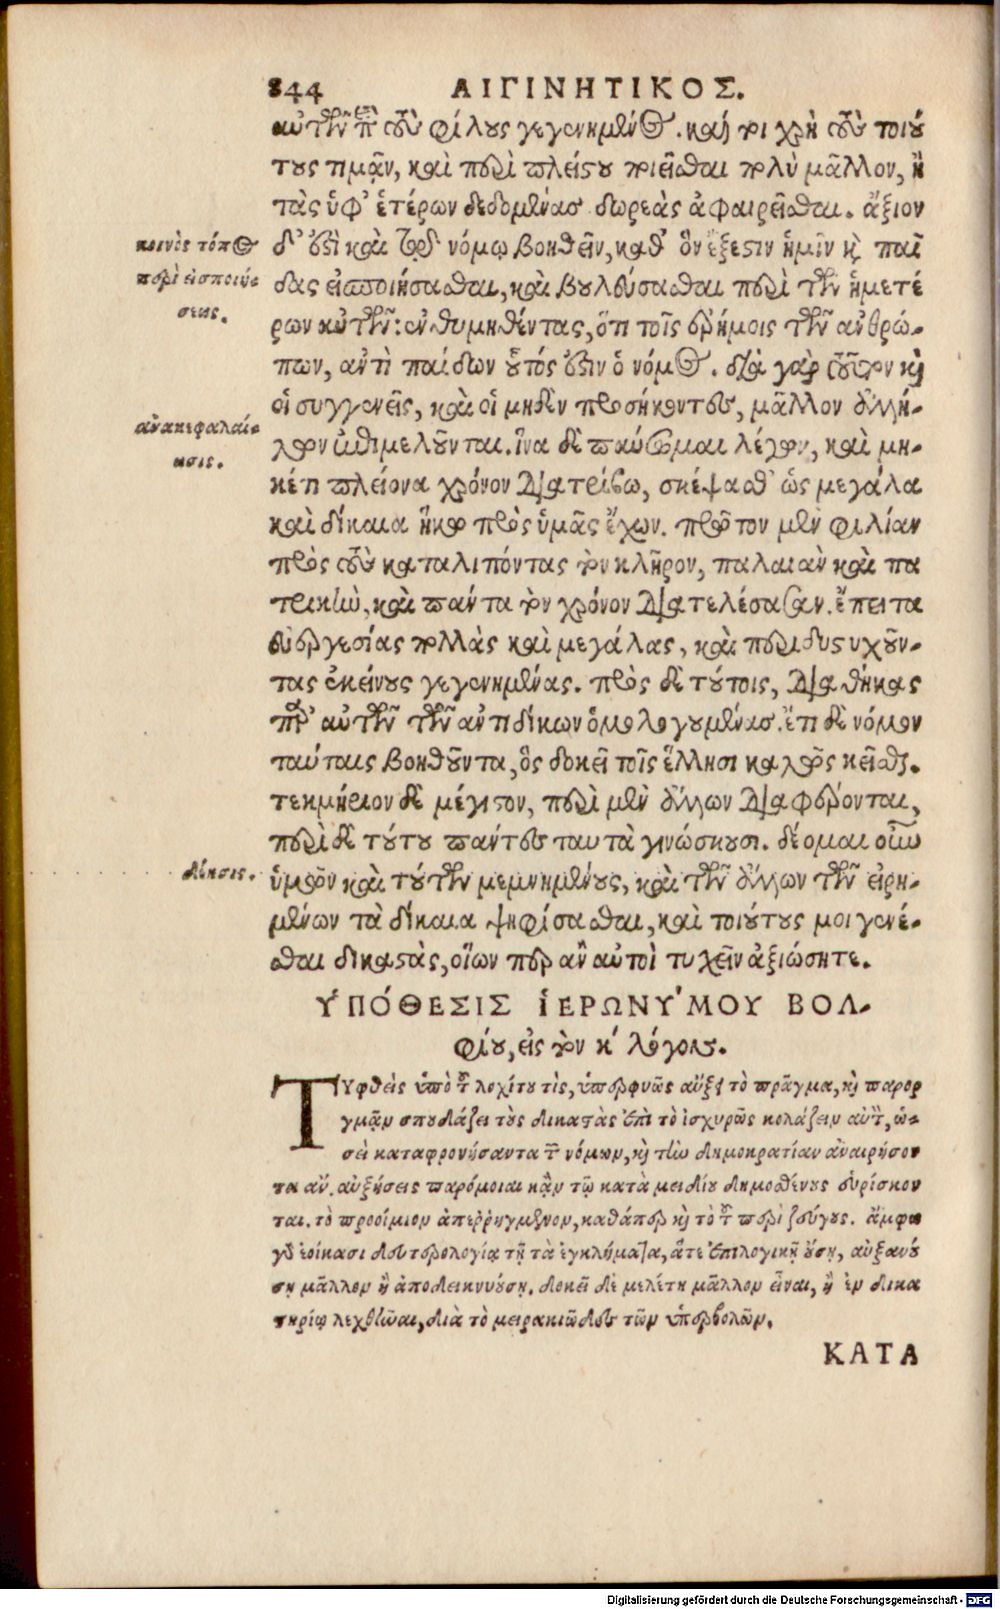 844 ΑΙΓΙΝΗΤΙΚΟΣ.
αὐτῶν περὶ τοὺς φίλους γεγενημένος. καίτοι χρὴ τοὺς τοιού
τους τιμᾷν, καὶ περὶ πλείστου ποιεῖσθαι πολὺ μᾶλλον, ἢ
τὰς ὑφ' ἑτέρων δεδομένας δωρεὰς ἀφαιρεῖσθαι. ἄξιον
κοινὸς τόπος
δ' ἐστὶ καὶ τῷδε νόμῳ βοηθεῖν, καθ' ὃν ἔξεστιν ἡμῖν καὶ παῖ
περὶ εἰσποιή-
δας εἰσποιήσασθαι, καὶ βουλεύσασθαι περὶ τῶν ἡμετέ
σεως.
ρων αὐτῶν: ἐνθυμηθέντας, ὅτι τοῖς ἐρήμοις τῶν ἀνθρώ-
πων, ἀντὶ παίδων οὗτός ἐστιν ὁ νόμος. διὰ γὰρ τοῦτον καὶ
οἱ συγγενεῖς, καὶ οἱ μηδὲν προσήκοντες, μᾶλλον ἀλλή-
ἀνακεφαλαί-
λων ἐπιμελοῦνται. ἵνα δὲ παύσωμαι λέγων, καὶ μη-
ωσις.
κέτι πλείονα χρόνον διατρίβω, σκέψασθ' ὡς μεγάλα
καὶ δίκαια ἥκω πρὸς ὑμᾶς ἔχων. πρῶτον μὲν φιλίαν
πρὸς τοὺς καταλιπόντας τὸν κλῆρον, παλαιὰν καὶ πα
τρικὴν, καὶ πάντα τὸν χρόνον διατελέσασαν. ἔπειτα
εὐεργεσίας πολλὰς καὶ μεγάλας, καὶ περὶ δυστυχοῦν-
τας ἐκείνους γεγενημένας. πρὸς δὲ τούτοις, διαθήκας
παρ' αὐτῶν τῶν ἀντιδίκων ὁμολογουμένας. ἔτι δὲ νόμον
ταύταις βοηθοῦντα, ὃς δοκεῖ τοῖς ἕλλησι καλῶς κεῖσθαι.
τεκμήριον δὲ μέγιστον, περὶ μὲν ἄλλων διαφέρονται,
περὶ δὲ τούτου πάντες ταυτὰ γινώσκουσι. δέομαι οὖν
δέησις.
ὑμῶν καὶ τούτων μεμνημένους, καὶ τῶν ἄλλων τῶν εἰρη-
μένων τὰ δίκαια ψηφίσασθαι, καὶ τοιούτους μοι γενέ-
σθαι δικαστὰς, οἵων περ ἂν αὐτοὶ τυχεῖν ἀξιώσητε.
ΥΠΟΘΕΣΙΣ ΙΕΡΩΝΥΜΟΥ ΒΟΛ-
φίου, εἰς τὸν κ' λόγον.
Τυφθεὶς ὑπὸ τοῦ λοχίτου τὶς, ὑπερφυῶς αὔξει τὸ πρᾶγμα, καὶ παρορ
γμᾷν σπουδάζει τοὺς δικαστὰς ἐπὶ τὸ ἰσχυρῶς κολάζειν αὐτὸν, ὡ-
σεὶ καταφρονήσαντα τῶν νόμων, καὶ τὴν δημοκρατίαν ἀναιρήσον
τα ἄν. αὐξήσεις παρόμοιαι κἀν τῷ κατὰ μειδίου δημοσθένους εὑρίσκον
ται. τὸ προοίμιον ἀπερρηγμένον, καθάπερ καὶ τὸ τοῦ περὶ ζεύγους. ἄμφω
γὰρ ἐοίκασι δευτερολογίᾳ τῇ τὰ ἐγκλήματα, ἅτε ἐπιλογικῇ οὔσῃ, αὐξανού
σῃ μᾶλλον ἢ ἀποδεικνυούσῃ. δοκεῖ δὲ μελέτη μᾶλλον εἶναι, ἢ ἐν δικα
τηρίῳ λεχθῆναι, διὰ τὸ μειρακιῶδες τῶν ὑπερβολῶν.
ΚΑΤΑ
Digitalisierung gefördert durch die Deutsche Forschungsgemeinschaft - DFG